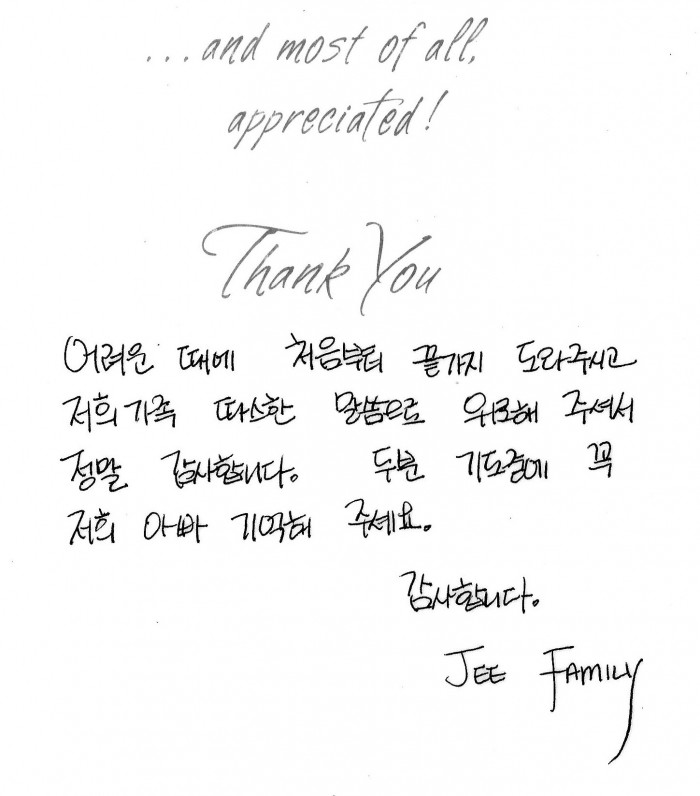 ...and most of all,
appreciated!
Thank You
어려운 때에 처음부터 끝가지 도와주시고
저희가족 따스한 말씀으로 위로해 주셔서
정말 감사합니다. 두분 기도중에 꼭
저희 아빠 기억해 주세요.
감사합니다.
JEE FAMILY